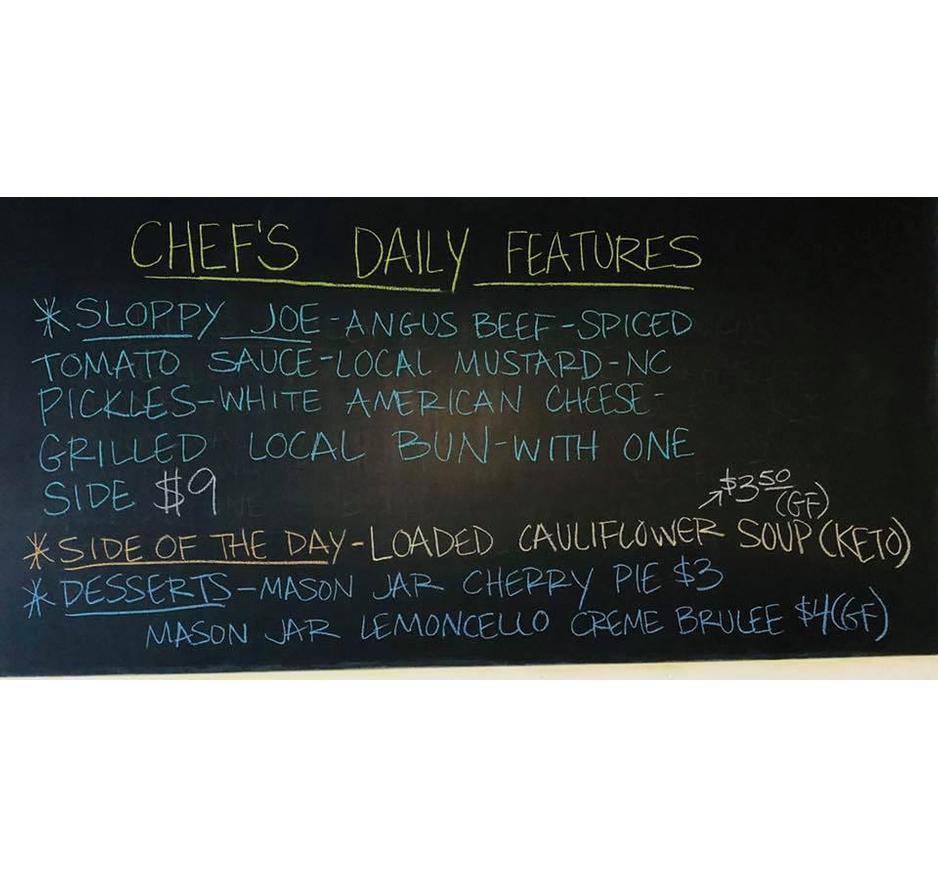 CHEF'S DAILY FEATURES
*SLOPPY JOE-ANGUS BEEF-SPICED
TOMATO SAUCE-LOCAL MUSTARD-NC
PICKLES-WHITE AMERICAN CHEESE-
GRILLED LOCAL BUN-WITH ONE
SIDE $9
$3.50
(GF)
*SIDE OF THE DAY-LOADED CAULIFLOWER SOUP (KETO)
*DESSERTS-MASON JAR CHERRY PIE $3
MASON JAR LEMONCELLO CREME BRULEE $4(GF)